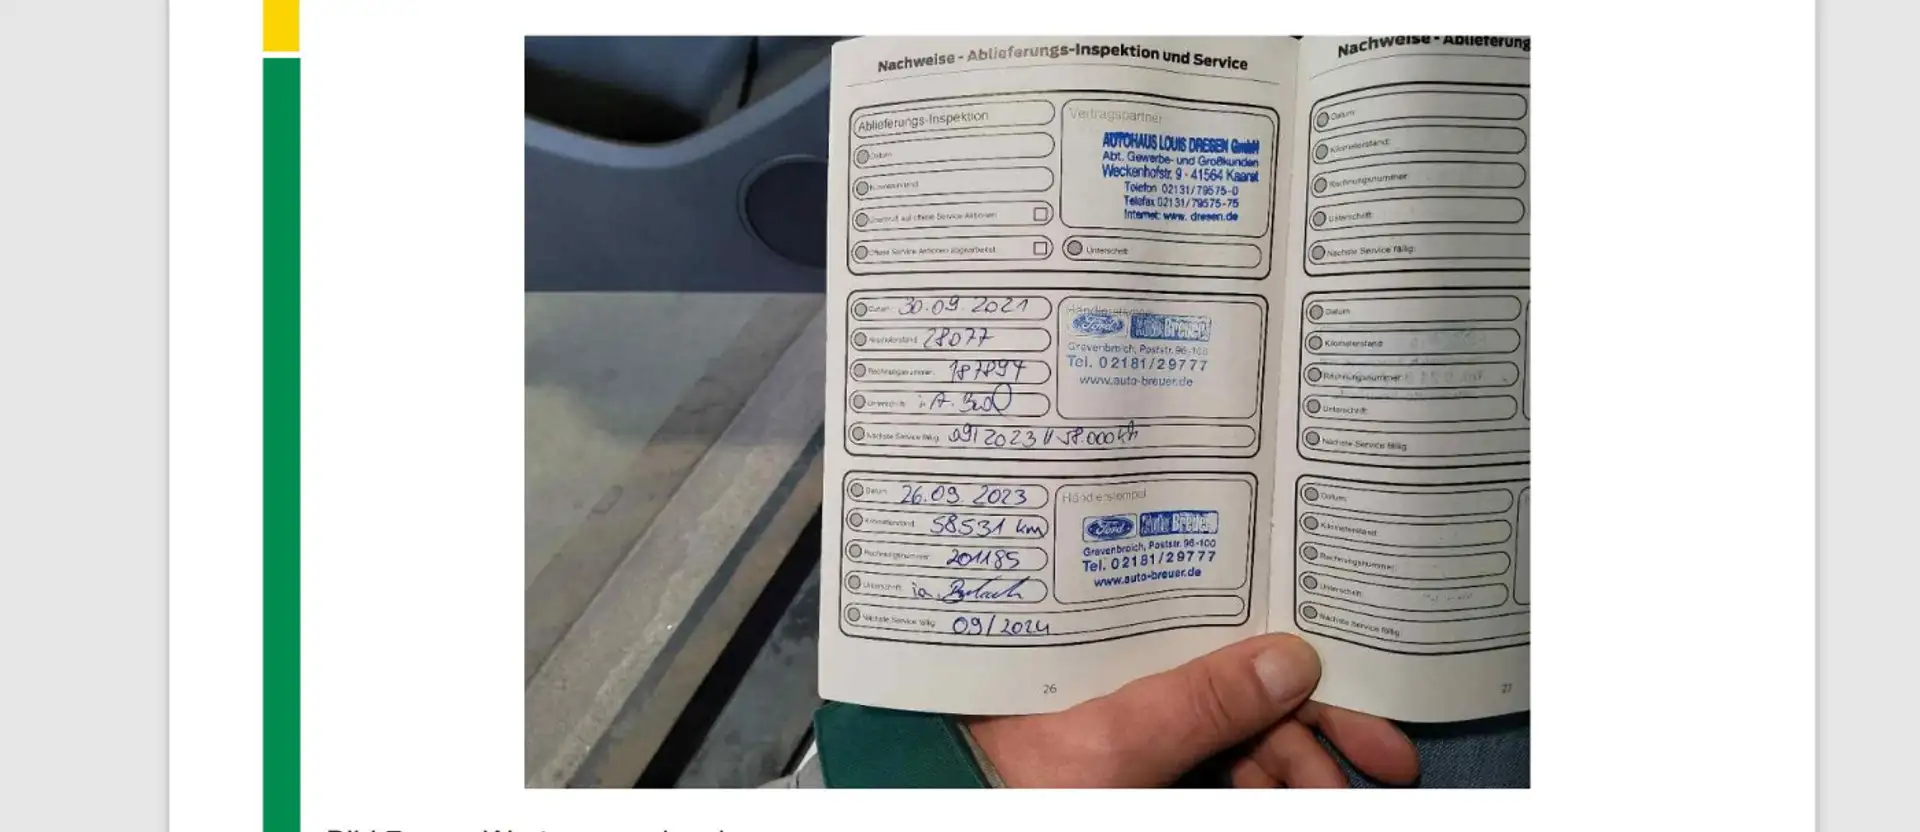 Nachweise - Ablieferungs-Inspektion und Service
Ablieferungs-Inspektion
Datum
Kilometerstand
Überprüft auf offene Service Aktionen
Offene Service Aktionen abgearbeitet
Vertragspartner
AUTOHAUS LOUIS DRESEN GmbH
Abt. Gewerbe- und Großkunden
Weckenhofstr. 9 - 41564 Kaarst
Telefon 02131/79575-0
Telefax 02131/79575-75
Internet: www. dresen.de
Unterschrift
Datum 30.09.2021
Kilometerstand 28077
Rechnungsnummer: 187894
Unterschrift i.A.
Nächste Service fällig 09/2023 // 58.000 km
Händlerstempel
Ford Auto Breuer
Grevenbroich, Poststr. 96-100
Tel. 02181/29777
www.auto-breuer.de
Datum 26.09.2023
Kilometerstand 58531 km
Rechnungsnummer 201185
Unterschrift ia
Nächste Service fällig 09/2024
Händlerstempel
Ford Auto Breuer
Grevenbroich, Poststr. 96-100
Tel. 02181/29777
www.auto-breuer.de
26
Nachweise - Ablieferung
Datum
Kilometerstand:
Rechnungsnummer
Unterschrift
Nächste Service fällig:
Datum
Kilometerstand
Rechnungsnummer
Unterschrift
Nächste Service fällig
Datum
Kilometerstand
Rechnungsnummer
Unterschrift
Nächste Service fällig
27